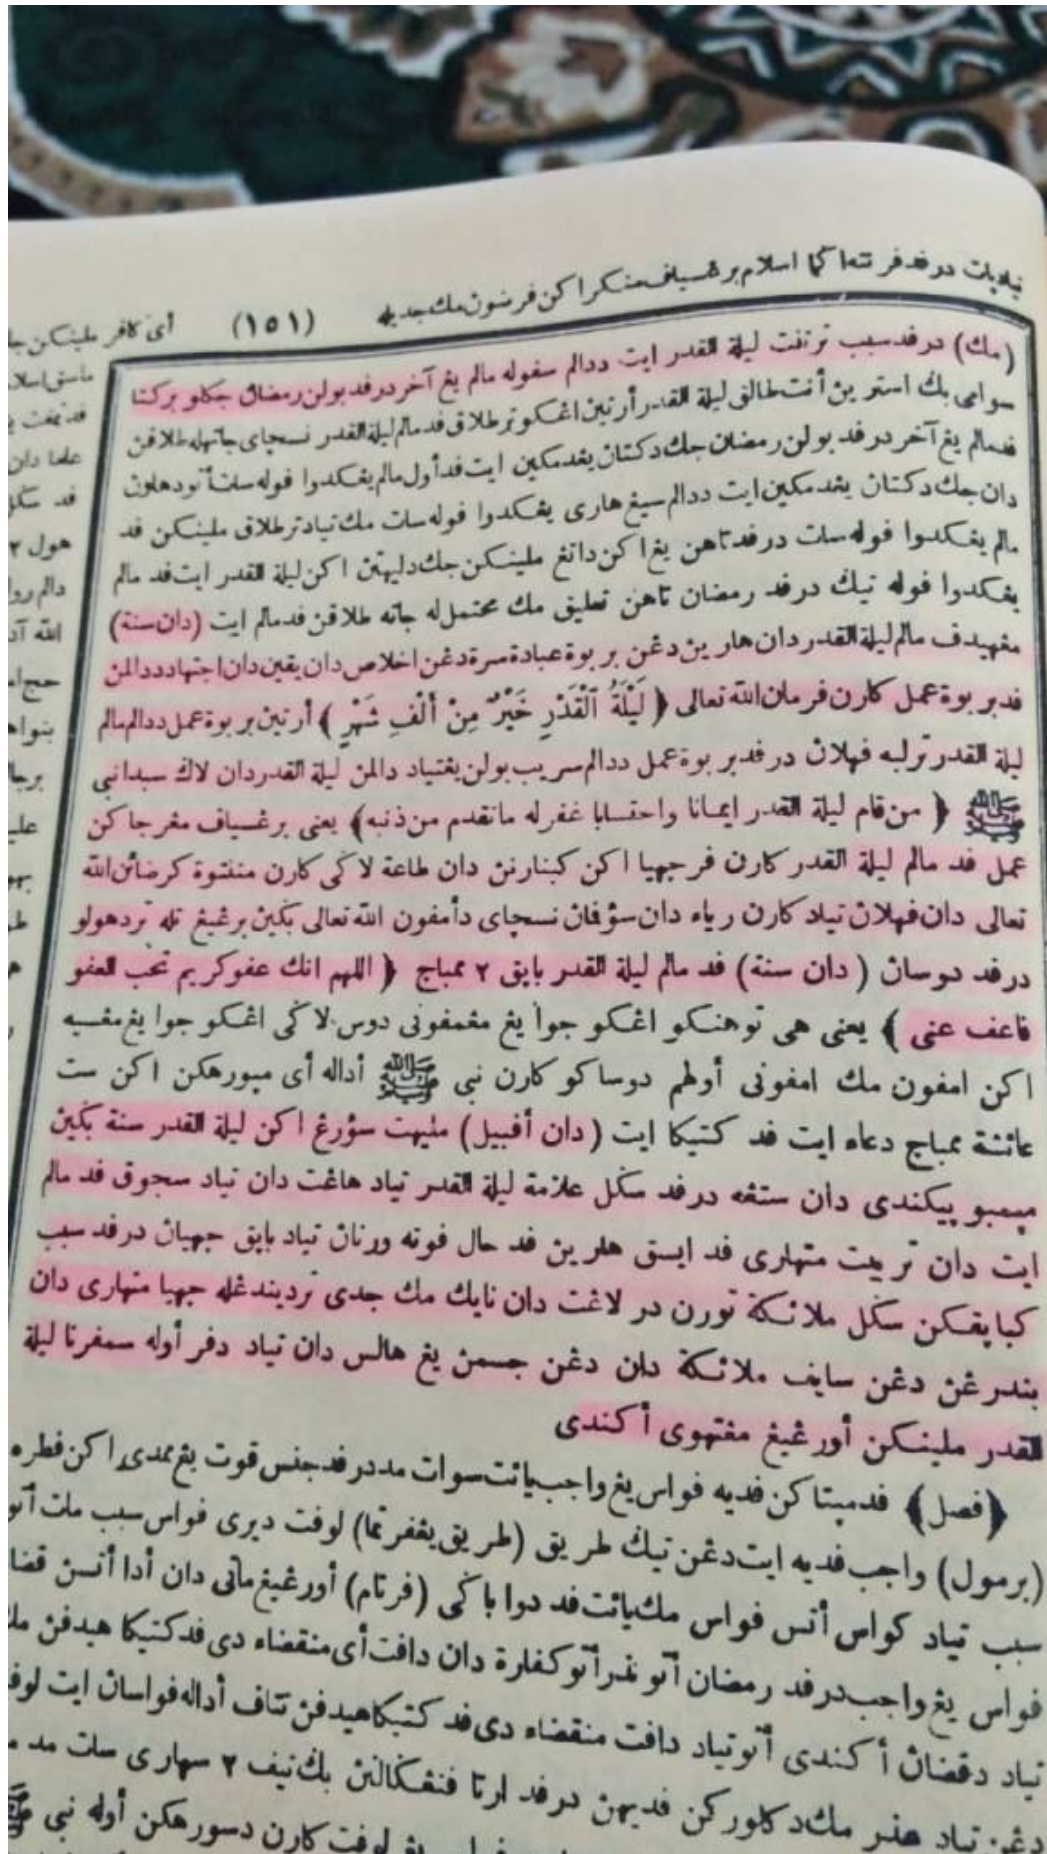 (١٥١)
(مك) در فد سبب ترتفت ليلة القدر ايت ددالم سفوله مالم يغ آخر در فد بولن رمضان جكلو بركتا
سوامى بك استرين أنت طالق ليلة القدر أرتين اغكو ترطلاق فد مالم ليلة القدر نسجاى جاتهله طلاقن
فد مالم يغ آخر در فد بولن رمضان جك دكتان يغدمكين ايت فد أول مالم يغكدوا فوله سات أتو دهلون
دان جك دكتان يغدمكين ايت ددالم سيغ هارى يغكدوا فوله سات مك تياد ترطلاق ملينكن فد
مالم يغكدوا فوله سات در فد تاهن يغ اكن داتغ ملينكن جك دليهتن اكن ليلة القدر ايت فد مالم
يغكدوا فوله تيك در فد رمضان تاهن تعليق مك محتمل له جاته طلاقن فد مالم ايت (دان سنة)
مغهيدف مالم ليلة القدر دان هارين دغن بربوة عبادة سرة دغن اخلاص دان يقين دان اجتهاد ددالمن
فد بربوة عمل كارن فرمان الله تعالى ﴿ لَيْلَةُ الْقَدْرِ خَيْرٌ مِنْ أَلْفِ شَهْرٍ ﴾ أرتين بربوة عمل ددالم مالم
ليلة القدر ترلبه فهلان در فد بربوة عمل ددالم سريب بولن يغتياد دالمن ليلة القدر دان لاك سبدا نبي
ﷺ ﴿ من قام ليلة القدر ايمانا واحتسابا غفرله ماتقدم من ذنبه﴾ يعنى برغسياف مغرجاكن
عمل فد مالم ليلة القدر كارن فرجهيا اكن كبنارنن دان طاعة لاكى كارن منتتوة كرضائن الله
تعالى دان فهلان تياد كارن رياء دان سؤفان نسجاى دأمفون الله تعالى بكين برغيغ تله تردهولو
در فد دوسان ( دان سنة) فد مالم ليلة القدر بايق ٢ ممباج ﴿ اللهم انك عفو كريم تحب العفو
فاعف عنى ﴾ يعنى هى توهنكو اغكو جوا يغ مغمفونى دوس لاكى اغكو جوا يغ مغسيه
اكن امفون مك امفونى أولهم دوساكو كارن نبي ﷺ أداله أى مپورهكن اكن ست
عائشة ممباج دعاء ايت فد كتيكا ايت (دان أفبيل) مليهت سؤرغ اكن ليلة القدر سنة بكين
مپمبوپيكندى دان ستغه در فد سكل علامة ليلة القدر تياد هاغت دان تياد سجوق فد مالم
ايت دان تربيت متهارى فد ايسق هارين فد حال فوته ورنان تياد بايق جهيان در فد سبب
كبايقكن سكل ملائكة تورن در لاغت دان نايك مك جدى ترديندغله جهيا متهارى دان
بندرغن دغن سايف ملائكة دان دغن جسمن يغ هالس دان تياد دفراوله سمفرنا ليلة
القدر ملينكن أورغيغ مغتهوى أكندى
﴿فصل﴾ فد مپتاكن فديه فواس يغ واجب يائت سوات مد در فد جنس قوت يغ ممدى اكن فطره
(برمول) واجب فديه ايت دغن تيك طريق (طريق يغفرتما) لوفت ديرى فواس سبب مات أتو
سبب تياد كواس أتس فواس مك يائت فد دوا باكى (فرتام) أورغيغ ماتى دان أدا أتسن قضا
فواس يغ واجب در فد رمضان أتو نذر أتو كفارة دان دافت أى منقضاء دى فد كتيكا هيدفن
تياد دقضان أكندى أتو تياد دافت منقضاء دى فد كتيكا هيدفن تتاف أداله فواسان ايت
دغن تياد عذر مك دكلوركن فديهن در فد ارتا فنغكالنن بك تيف ٢ سهارى سات مد